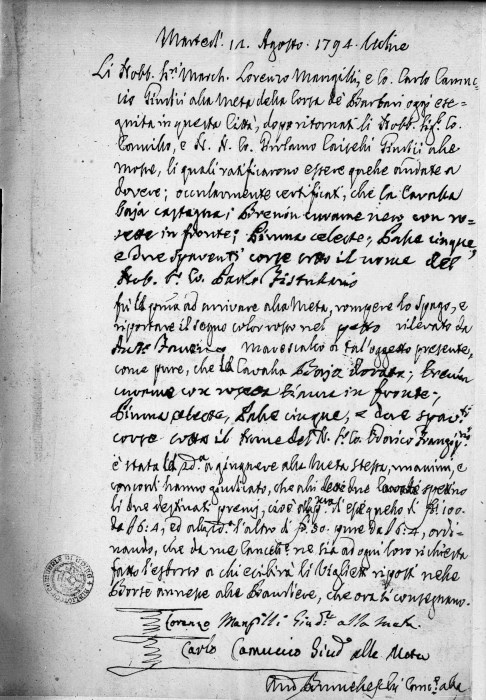 Martedì 12. Agosto 1794. Udine
Li Nobb. Sigri March. Lorenzo Mangilli, e Co. Carlo Camuc-
cio Giudici alla Meta della Corsa de' Barbari oggi ese-
guita in questa Città, dopo ritornati li Nobb. Sigri Co.
Camillo, e N. H. Co. Girolamo Caiselli Giudici alle
Mosse, li quali ratificarono essere quelle andate a
dovere; occularmente certificati, che la Cavalla
baja castagna; Brenon nero con ro-
sette in fronte; Piuma celeste; Palle cinque,
e due spaventi corse sotto il nome del
Nob. Sr. Co. Paolo
fù la prima ad arrivare alla Meta, rompere lo Spago, e
riportare il segno color rosso nel petto rilevato da
Antº Marescalco a tal'oggetto presente,
come pure, che la Cavalla Baja dorata; Brenon
con rosetta bianca in fronte;
Piuma celeste, Palle cinque, e due spavti
corse sotto il Nome del N. Sr. Co. Odorico
è stata la 2da a giungere alla Meta stessa, unanimi, e
concordi hanno giudicato, che alli due spettino
li due destinati premj, cioè alla pma
da £ 6:4, ed alla 2da l'altro di pure da £ 6:4, ordi-
nando, che da me Cancre ne sia ad ogni loro richiesta
fatto l'esborso a chi esibirà li Viglietti riposti nelle
Borse annesse alle Bandiere, che ora si consegnano.
Lorenzo Mangilli Giude alla meta
Carlo Camuccio Giude alla Meta
Cancre